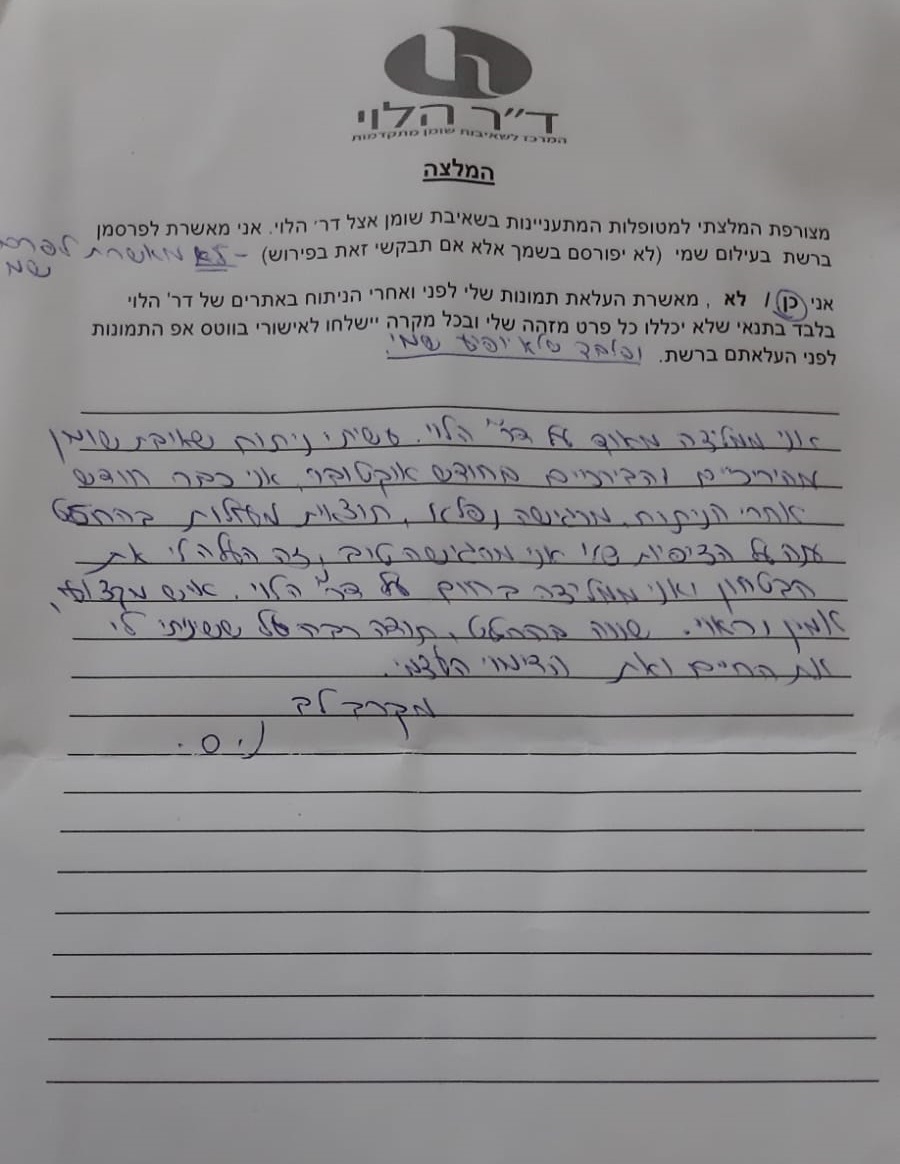 ד״ר הלוי
המרכז לשאיבות שומן מתקדמות
המלצה
מצורפת המלצתי למטופלות המתעניינות בשאיבת שומן אצל דר׳ הלוי. אני מאשרת לפרסמן
ברשת בעילום שמי (לא יפורסם בשמך אלא אם תבקשי זאת בפירוש) - לא מאשרת
שמי
אני כן / לא , מאשרת העלאת תמונות שלי לפני ואחרי הניתוח באתרים של דר' הלוי
בלבד בתנאי שלא יכללו כל פרט מזהה שלי ובכל מקרה יישלחו לאישורי בווטס אפ התמונות
לפני העלאתם ברשת. ובלבד שלא יופיע שמי.
אני ממליצה מאוד על דר״ הלוי. עשיתי ניתוח שאיבת שומן
מהיריכיים והברכיים בחודש אוקטובר, אני כבר חודש
אחרי הניתוח, מרגישה נפלא, תוצאות מעולות בהחלט
ענה על הציפיות שלי אני מרגישה טוב, זה העלה לי את
הבטחון ואני ממליצה בחום על דר״ הלוי. איש מקצועי,
אמין וראוי. שווה בהחלט, תודה רבה על ששינית לי
את החיים ואת הדימוי העצמי.
מקרב לב
נ. ס.